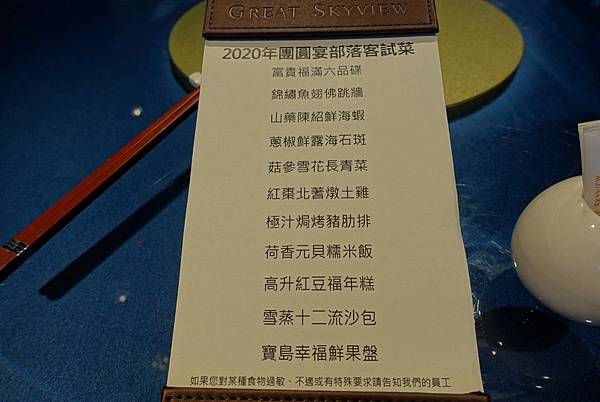 GREAT SKYVIEW
2020年團圓宴部落客試菜
富貴福滿六品碟
錦繡魚翅佛跳牆
山藥陳紹鮮海蝦
蔥椒鮮露海石斑
菇參雪花長青菜
紅棗北蓍燉土雞
極汁焗烤豬肋排
荷香元貝糯米飯
高升紅豆福年糕
雪蒸十二流沙包
寶島幸福鮮果盤
如果您對某種食物過敏、不適或有特殊要求請告知我們的員工